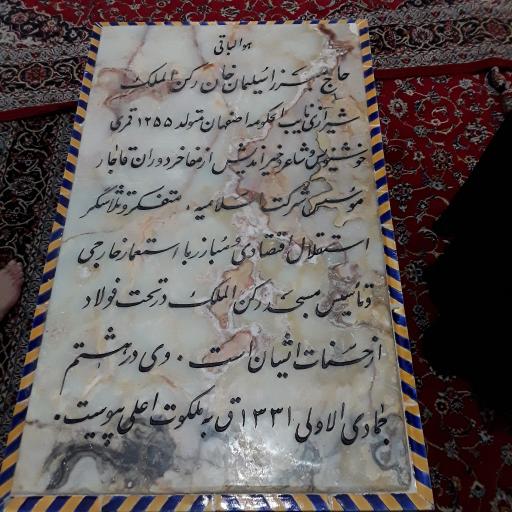 هو الباقی
حاج میرزا سلیمان خان رکن الملک
شیرازی نایب الحکومه اصفهان متولد ۱۲۵۵ قمری
خوشنویس و شاعر خیر اندیش از مفاخر دوران قاجار
موسس شرکت اسلامیه . متفکر و تلاشگر
استقلال اقتصادی و مبارز با استعمار خارجی
و تأسیس مسجد رکن الملک در تخت فولاد
از حسنات ایشان است . وی در هشتم
جمادی الاولی ۱۳۳۱ ق به ملکوت اعلی پیوست .